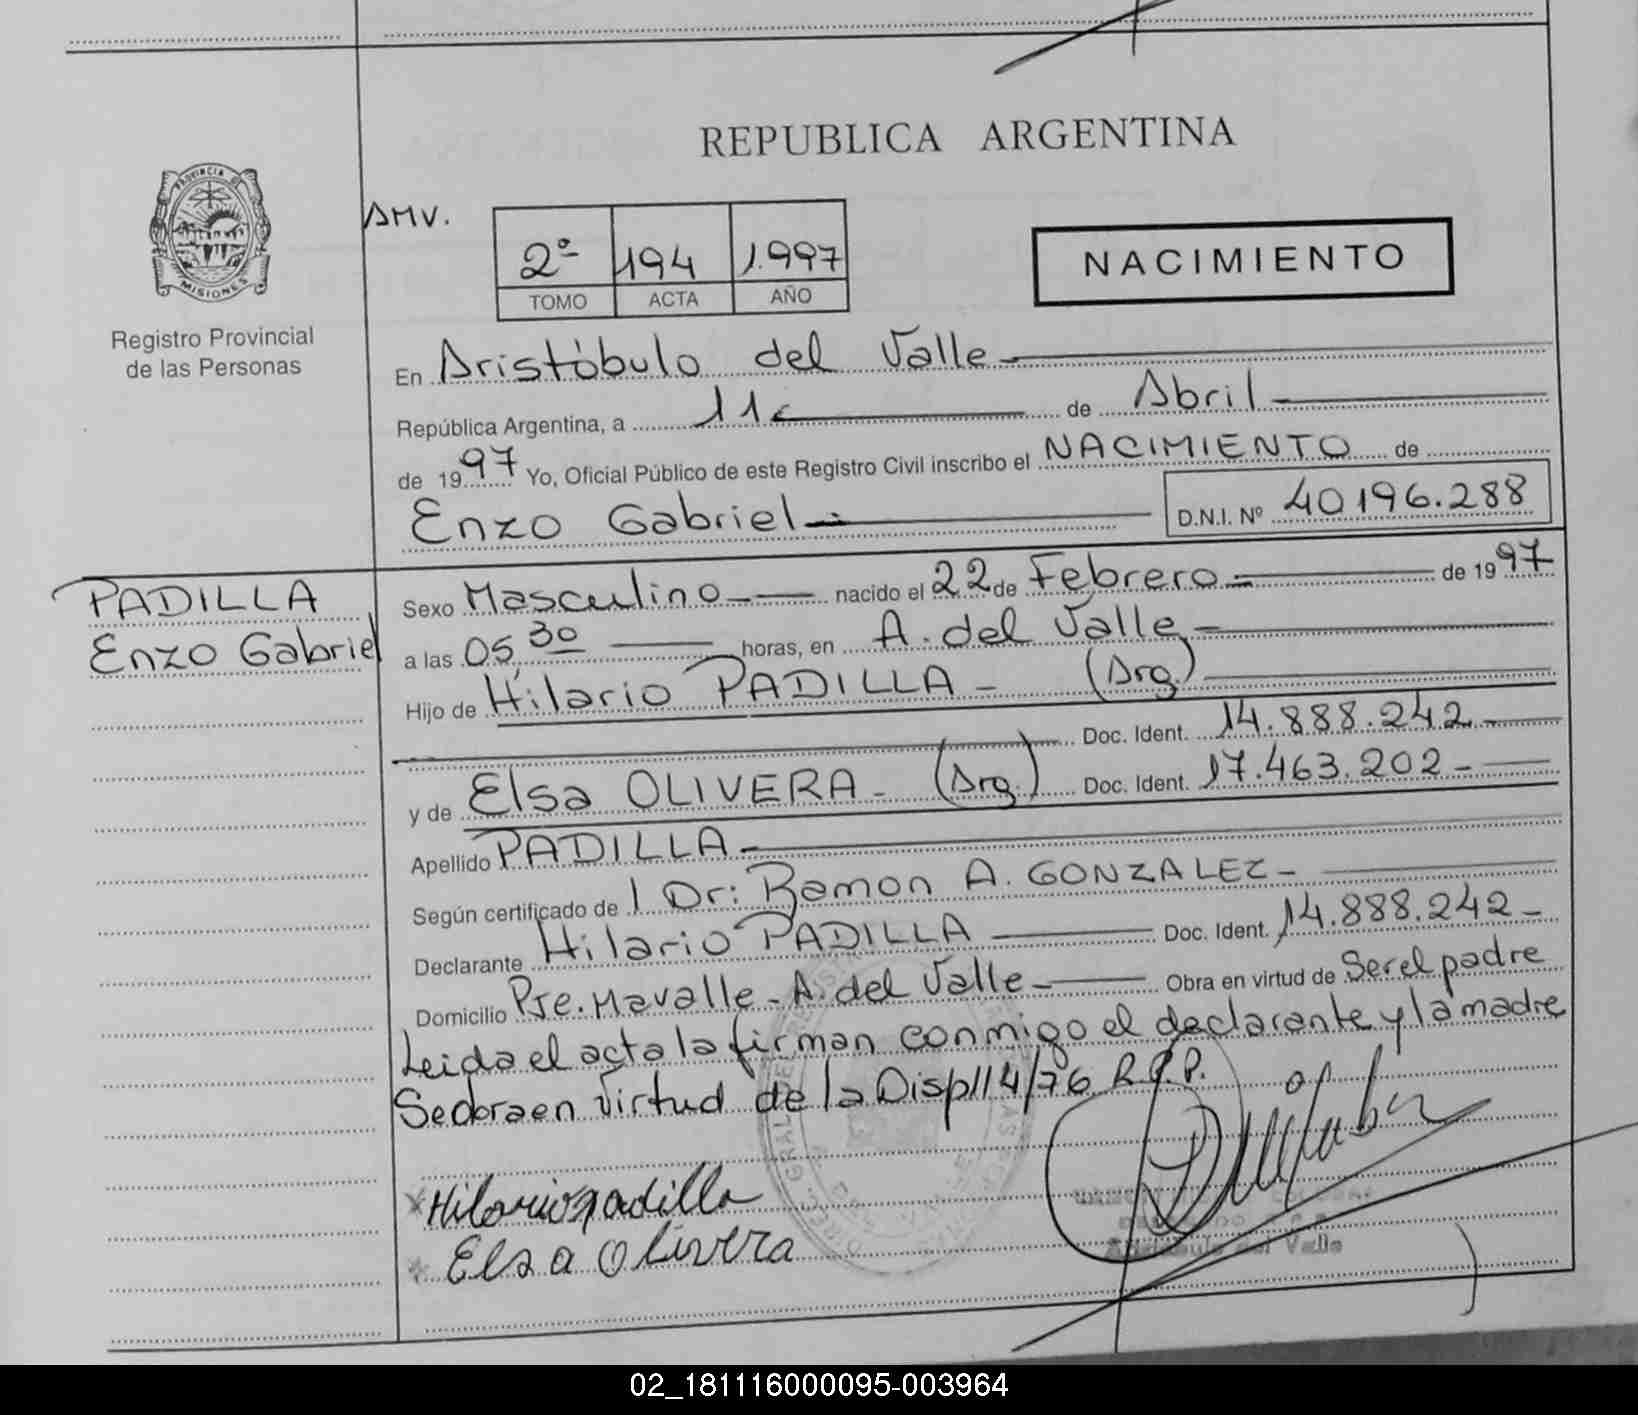 REPUBLICA ARGENTINA
PROVINCIA DE
MISIONES
Registro Provincial
de las Personas
AMV.
2º 194 1.997
TOMO ACTA AÑO
NACIMIENTO
En Aristóbulo del Valle
República Argentina, a 11 de Abril
de 1997 Yo, Oficial Público de este Registro Civil inscribo el NACIMIENTO de
Enzo Gabriel D.N.I. Nº 40196.288
PADILLA
Enzo Gabriel
Sexo Masculino nacido el 22 de Febrero de 1997
a las 05,30 horas, en A. del Valle
Hijo de Hilario PADILLA - (Arg.)
Doc. Ident. 14.888.242
y de Elsa OLIVERA - (Arg.) Doc. Ident. 17.463.202
Apellido PADILLA
Según certificado de l Dr: Ramon A. GONZALEZ
Declarante Hilario PADILLA Doc. Ident. 14.888.242
Domicilio Pje. Mavalle - A. del Valle Obra en virtud de Ser el padre
Leida el acta la firman conmigo el declarante y la madre
Se obra en virtud de la Disp 114/76 R.P.P.
Hilario padilla
Elsa Olivera
Aristobulo del Valle
02_181116000095-003964